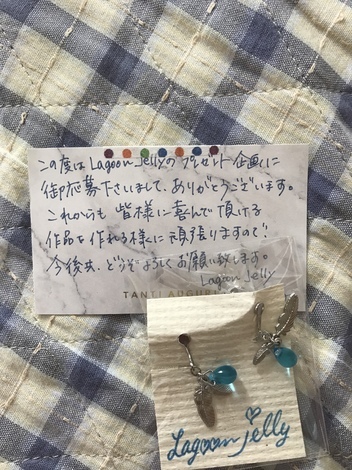 この度は Lagoon Jellyの プレゼント企画に
御応募下さいまして、ありがとうございます。
これからも 皆様に喜んで頂ける
作品を作れる様に頑張りますので!
今後共、どうぞよろしくお願い致します。
Lagoon Jelly
TANTI AUGURI
Lagoon jelly